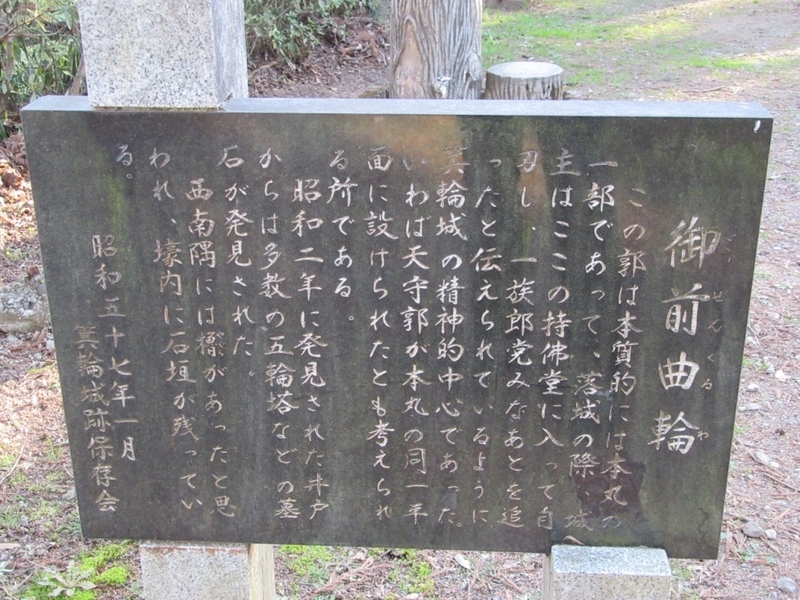 御前曲輪
ごぜんくるわ
この郭は本質的には本丸の
一部であって、落城の際城
主はここの持佛堂に入って自
刃し、一族郎党みなあとを追
ったと伝えられているように
箕輪城の精神的中心であった。
いわば天守郭が本丸の同一平
面に設けられたとも考えられ
る所である。
昭和二年に発見された井戸
からは多数の五輪塔などの墓
石が発見された。
西南隅には櫓があったと思
われ、壕内に石垣が残ってい
る。
昭和五十七年一月
箕輪城跡保存会